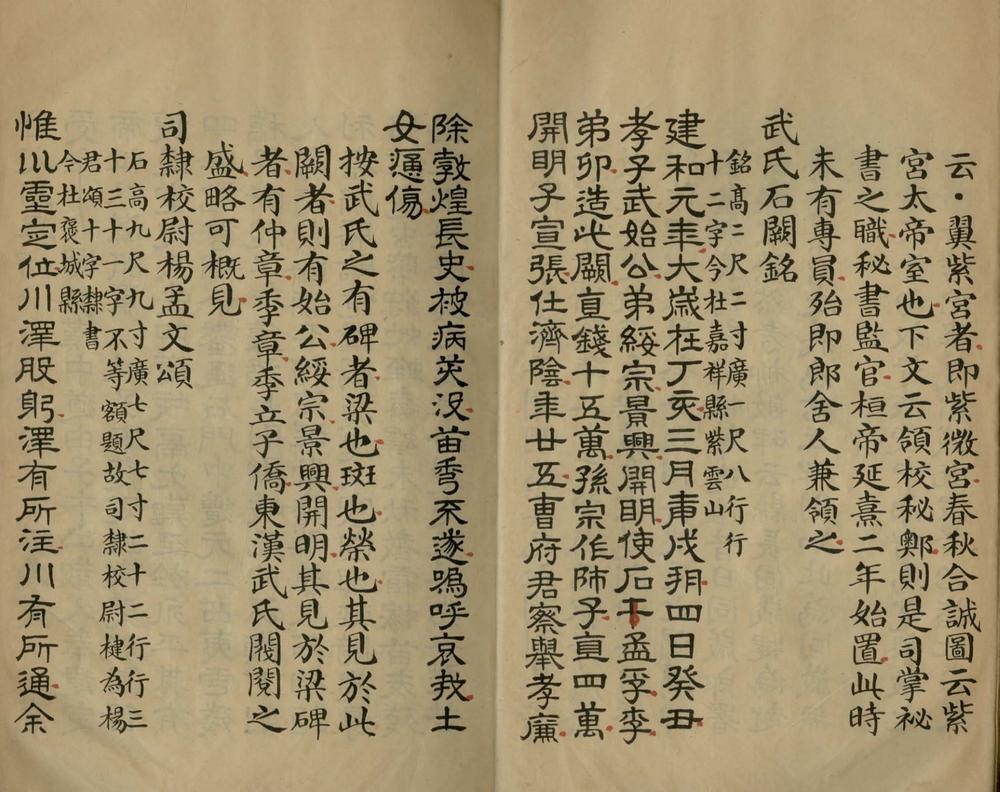 云翼紫宮者即紫微宮春秋合誠圖云紫
宮太帝室也下文云領校秘鄭則是司掌祕
書之職秘書監官桓帝延熹二年始置此時
未有專員殆即郎舍人兼領之
武氏石闕銘
銘高二尺二寸廣一尺八行行
十二字今在嘉祥縣紫雲山
建和元年大歲在丁亥三月庚戌朔四日癸丑
孝子武始公弟綏宗景興開明使石工孟孚李
弟卯造此闕直錢十五萬孫宗作師子直四萬
開明子宣張仕濟陰年廿五曹府君察舉孝廉
除敦煌長史被病夭沒苗秀不遂嗚呼哀哉士
女痛傷
按武氏之有碑者梁也斑也榮也其見於此
闕者則有始公綏宗景興開明其見於梁碑
者有仲章季章季立子僑東漢武氏閥閱之
盛略可概見
司隸校尉楊孟文頌
石高九尺九寸廣七尺七寸二十二行行三
十三十一字不等額題故司隸校尉楗為楊
君頌十字隸書
今在褒城縣
惟川靈定位川澤股躬澤有所注川有所通余